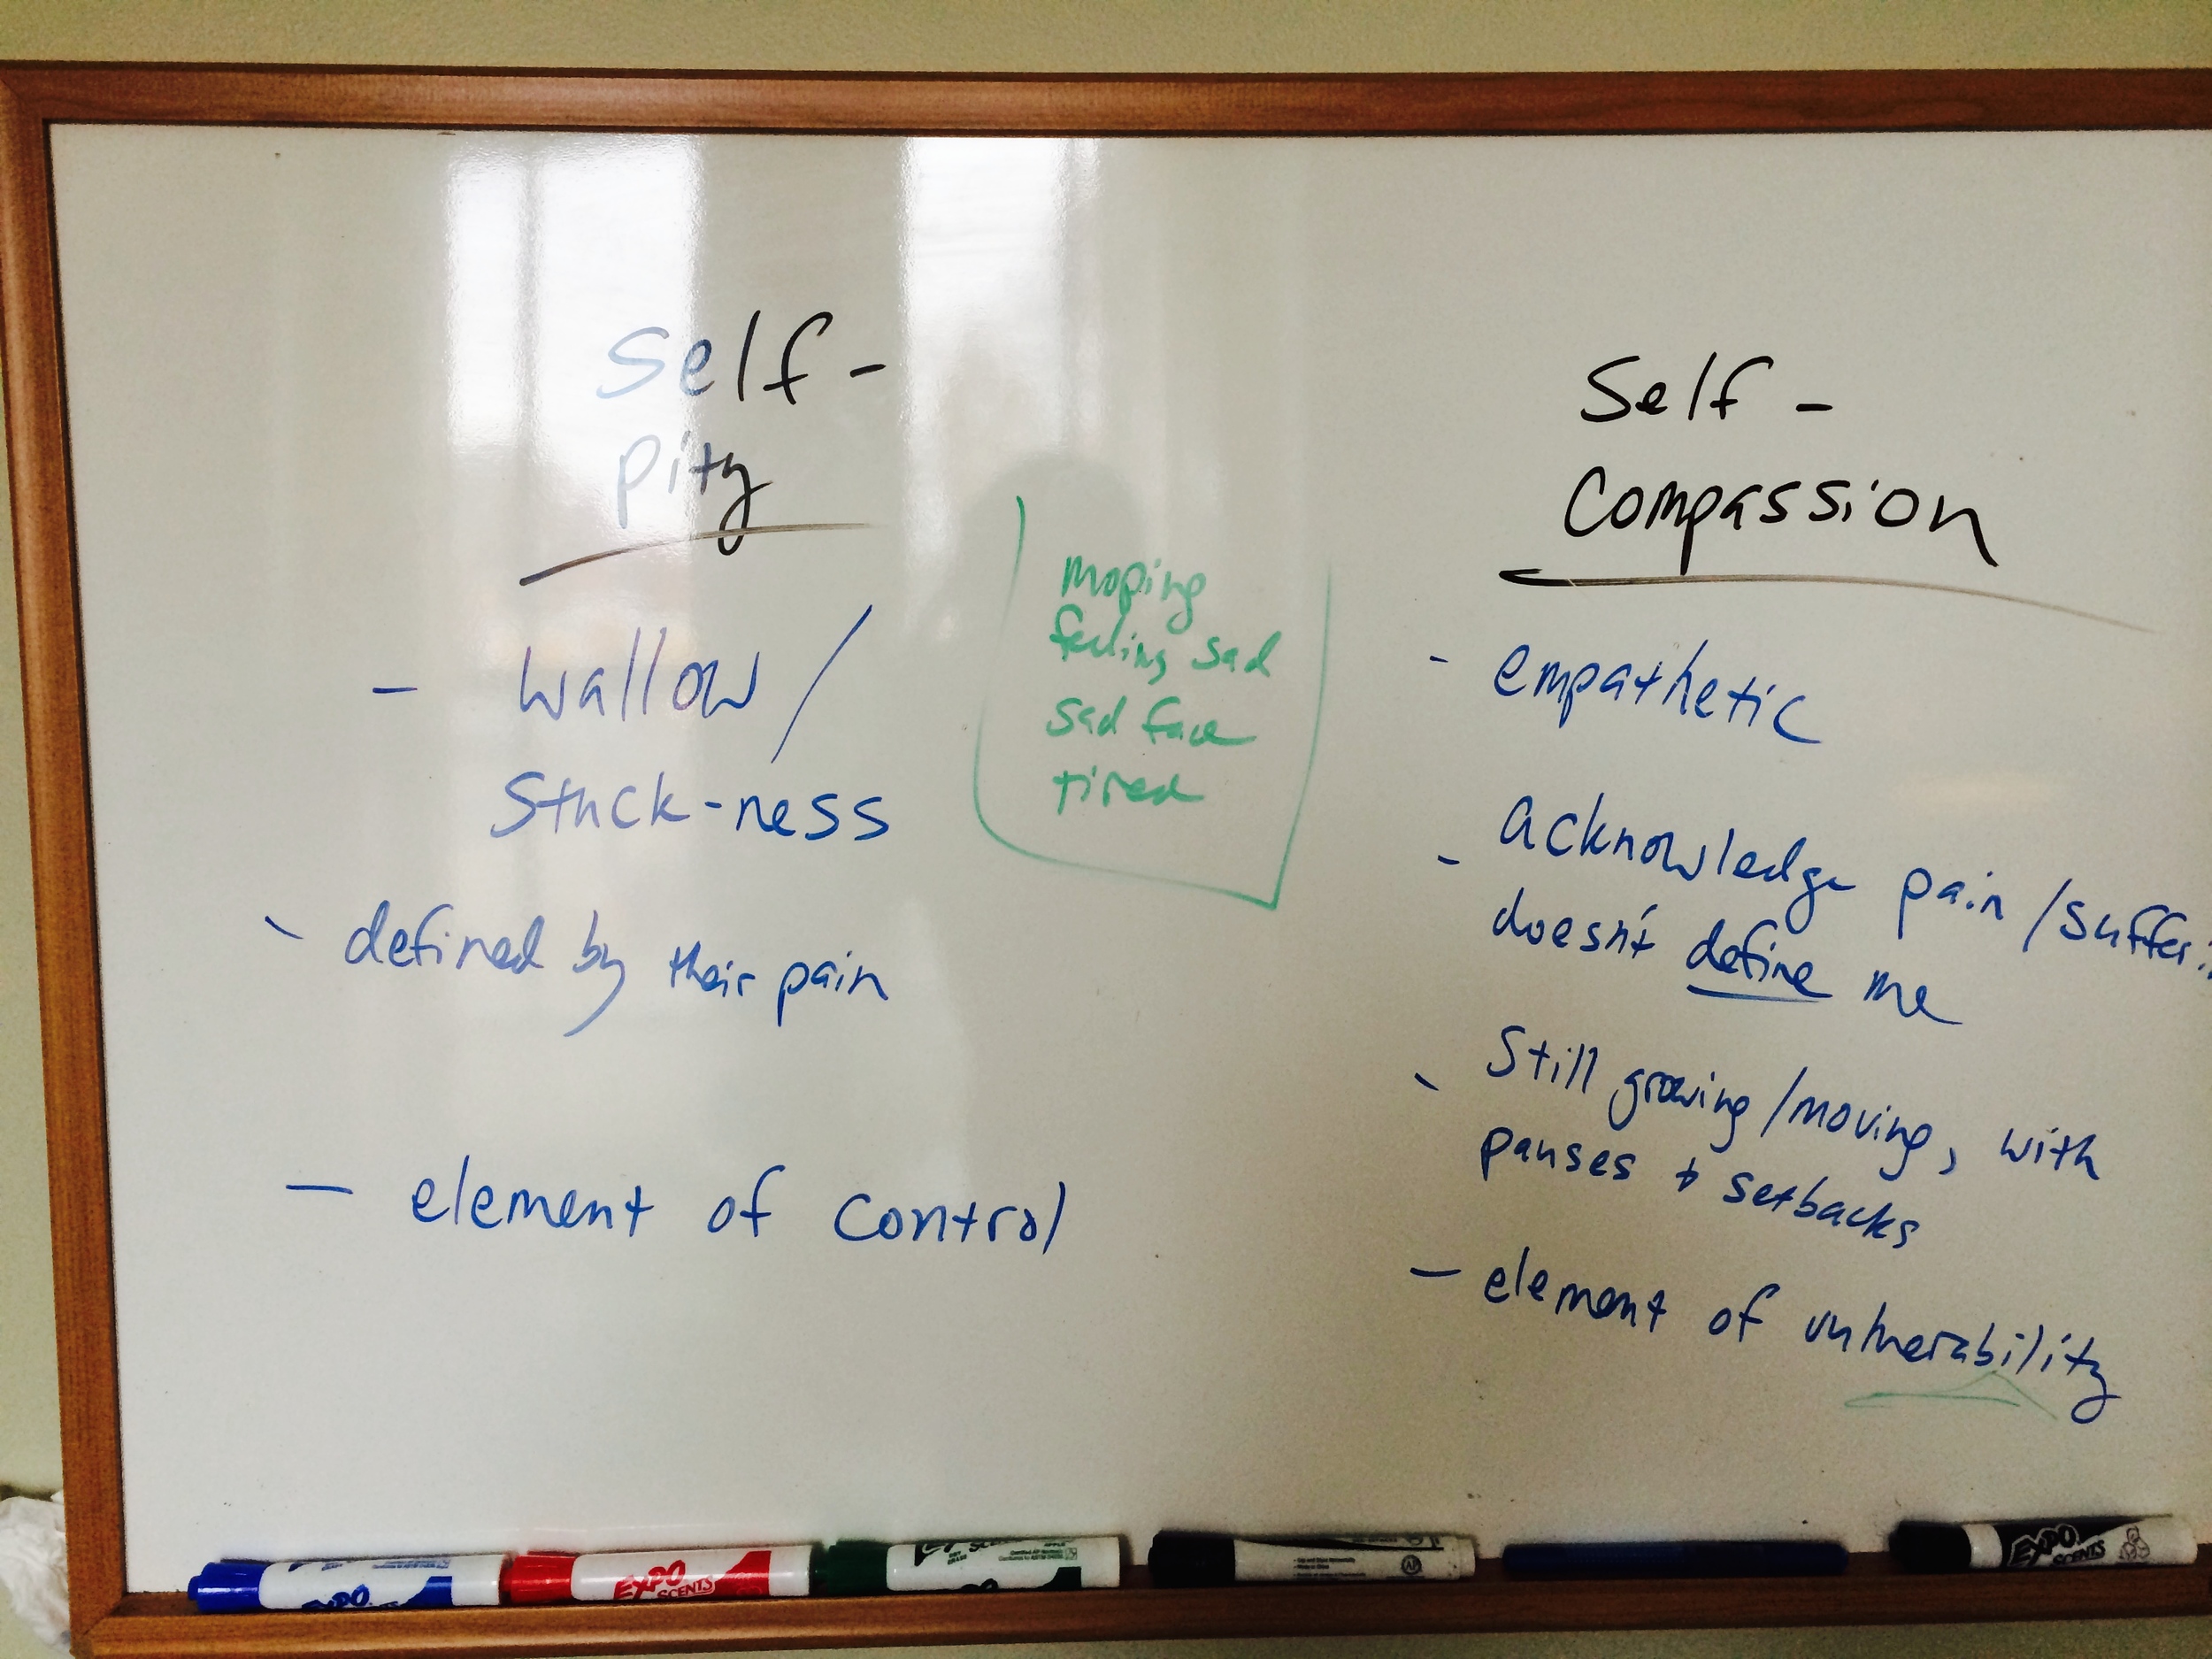 Self -
pity
- wallow /
stuck-ness
- defined by their pain
- element of control
moping
feeling sad
sad face
tired
Self -
Compassion
- empathetic
- acknowledge pain / suffer
doesn't define me
- Still growing / moving, with
pauses + setbacks
- element of vulnerability
EXPO
EXPO
SCENTS
AP
EXPO
SCENTS